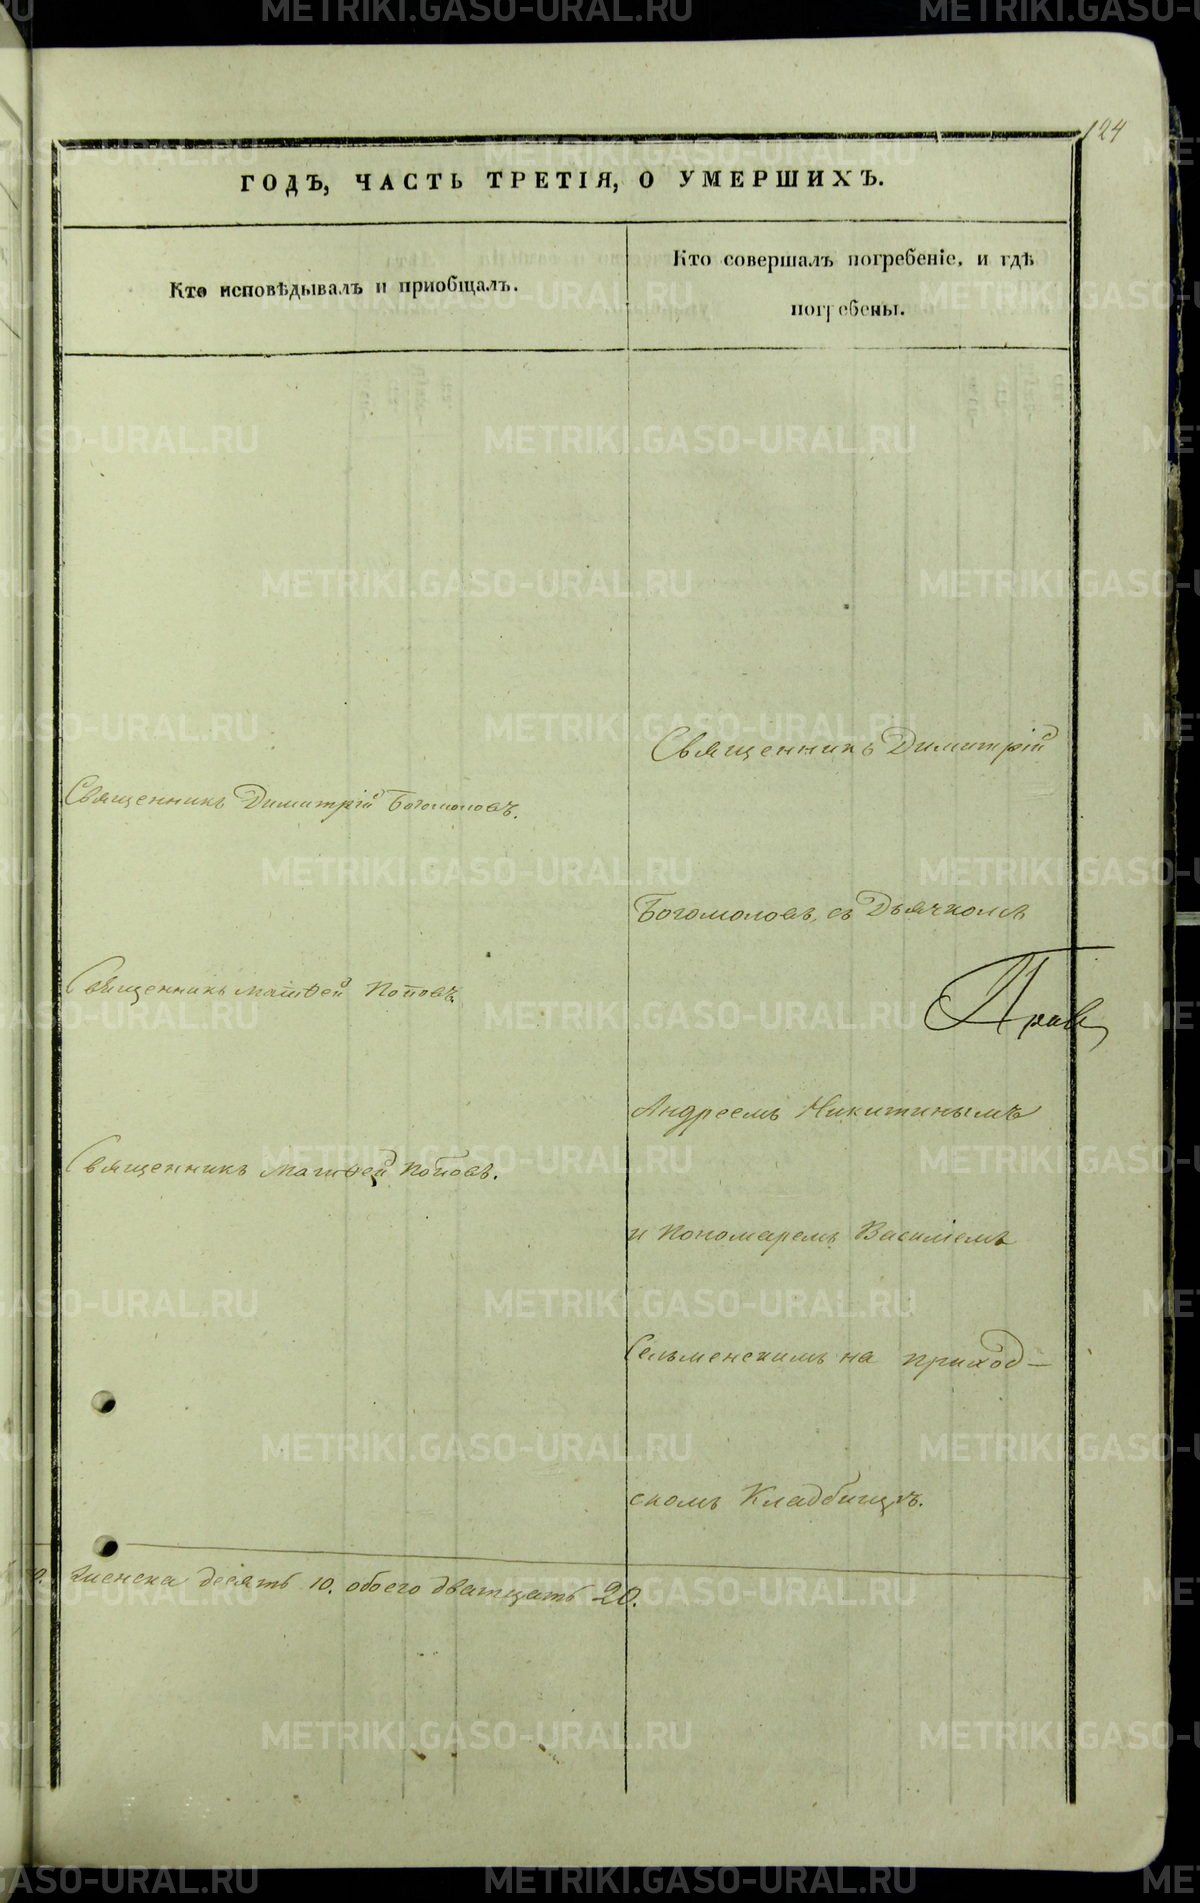 124
ГОДЪ, ЧАСТЬ ТРЕТІЯ, О УМЕРШИХЪ.
Кто исповѣдывалъ и приобщалъ.
Кто совершалъ погребеніе, и гдѣ
погребены.
Священникъ Димитрій Богомоловъ.
Священникъ Матѳей Поповъ
Священникъ Матѳей Поповъ.
Священникъ Димитрій
Богомоловъ, съ Дьячкомъ
Андреемъ Никитинымъ
и Пономаремъ Василіемъ
Сельменскимъ на приход-
скомъ Кладбищѣ.
женска десять 10. обоего дватцать 20.
METRIKI.GASO-URAL.RU